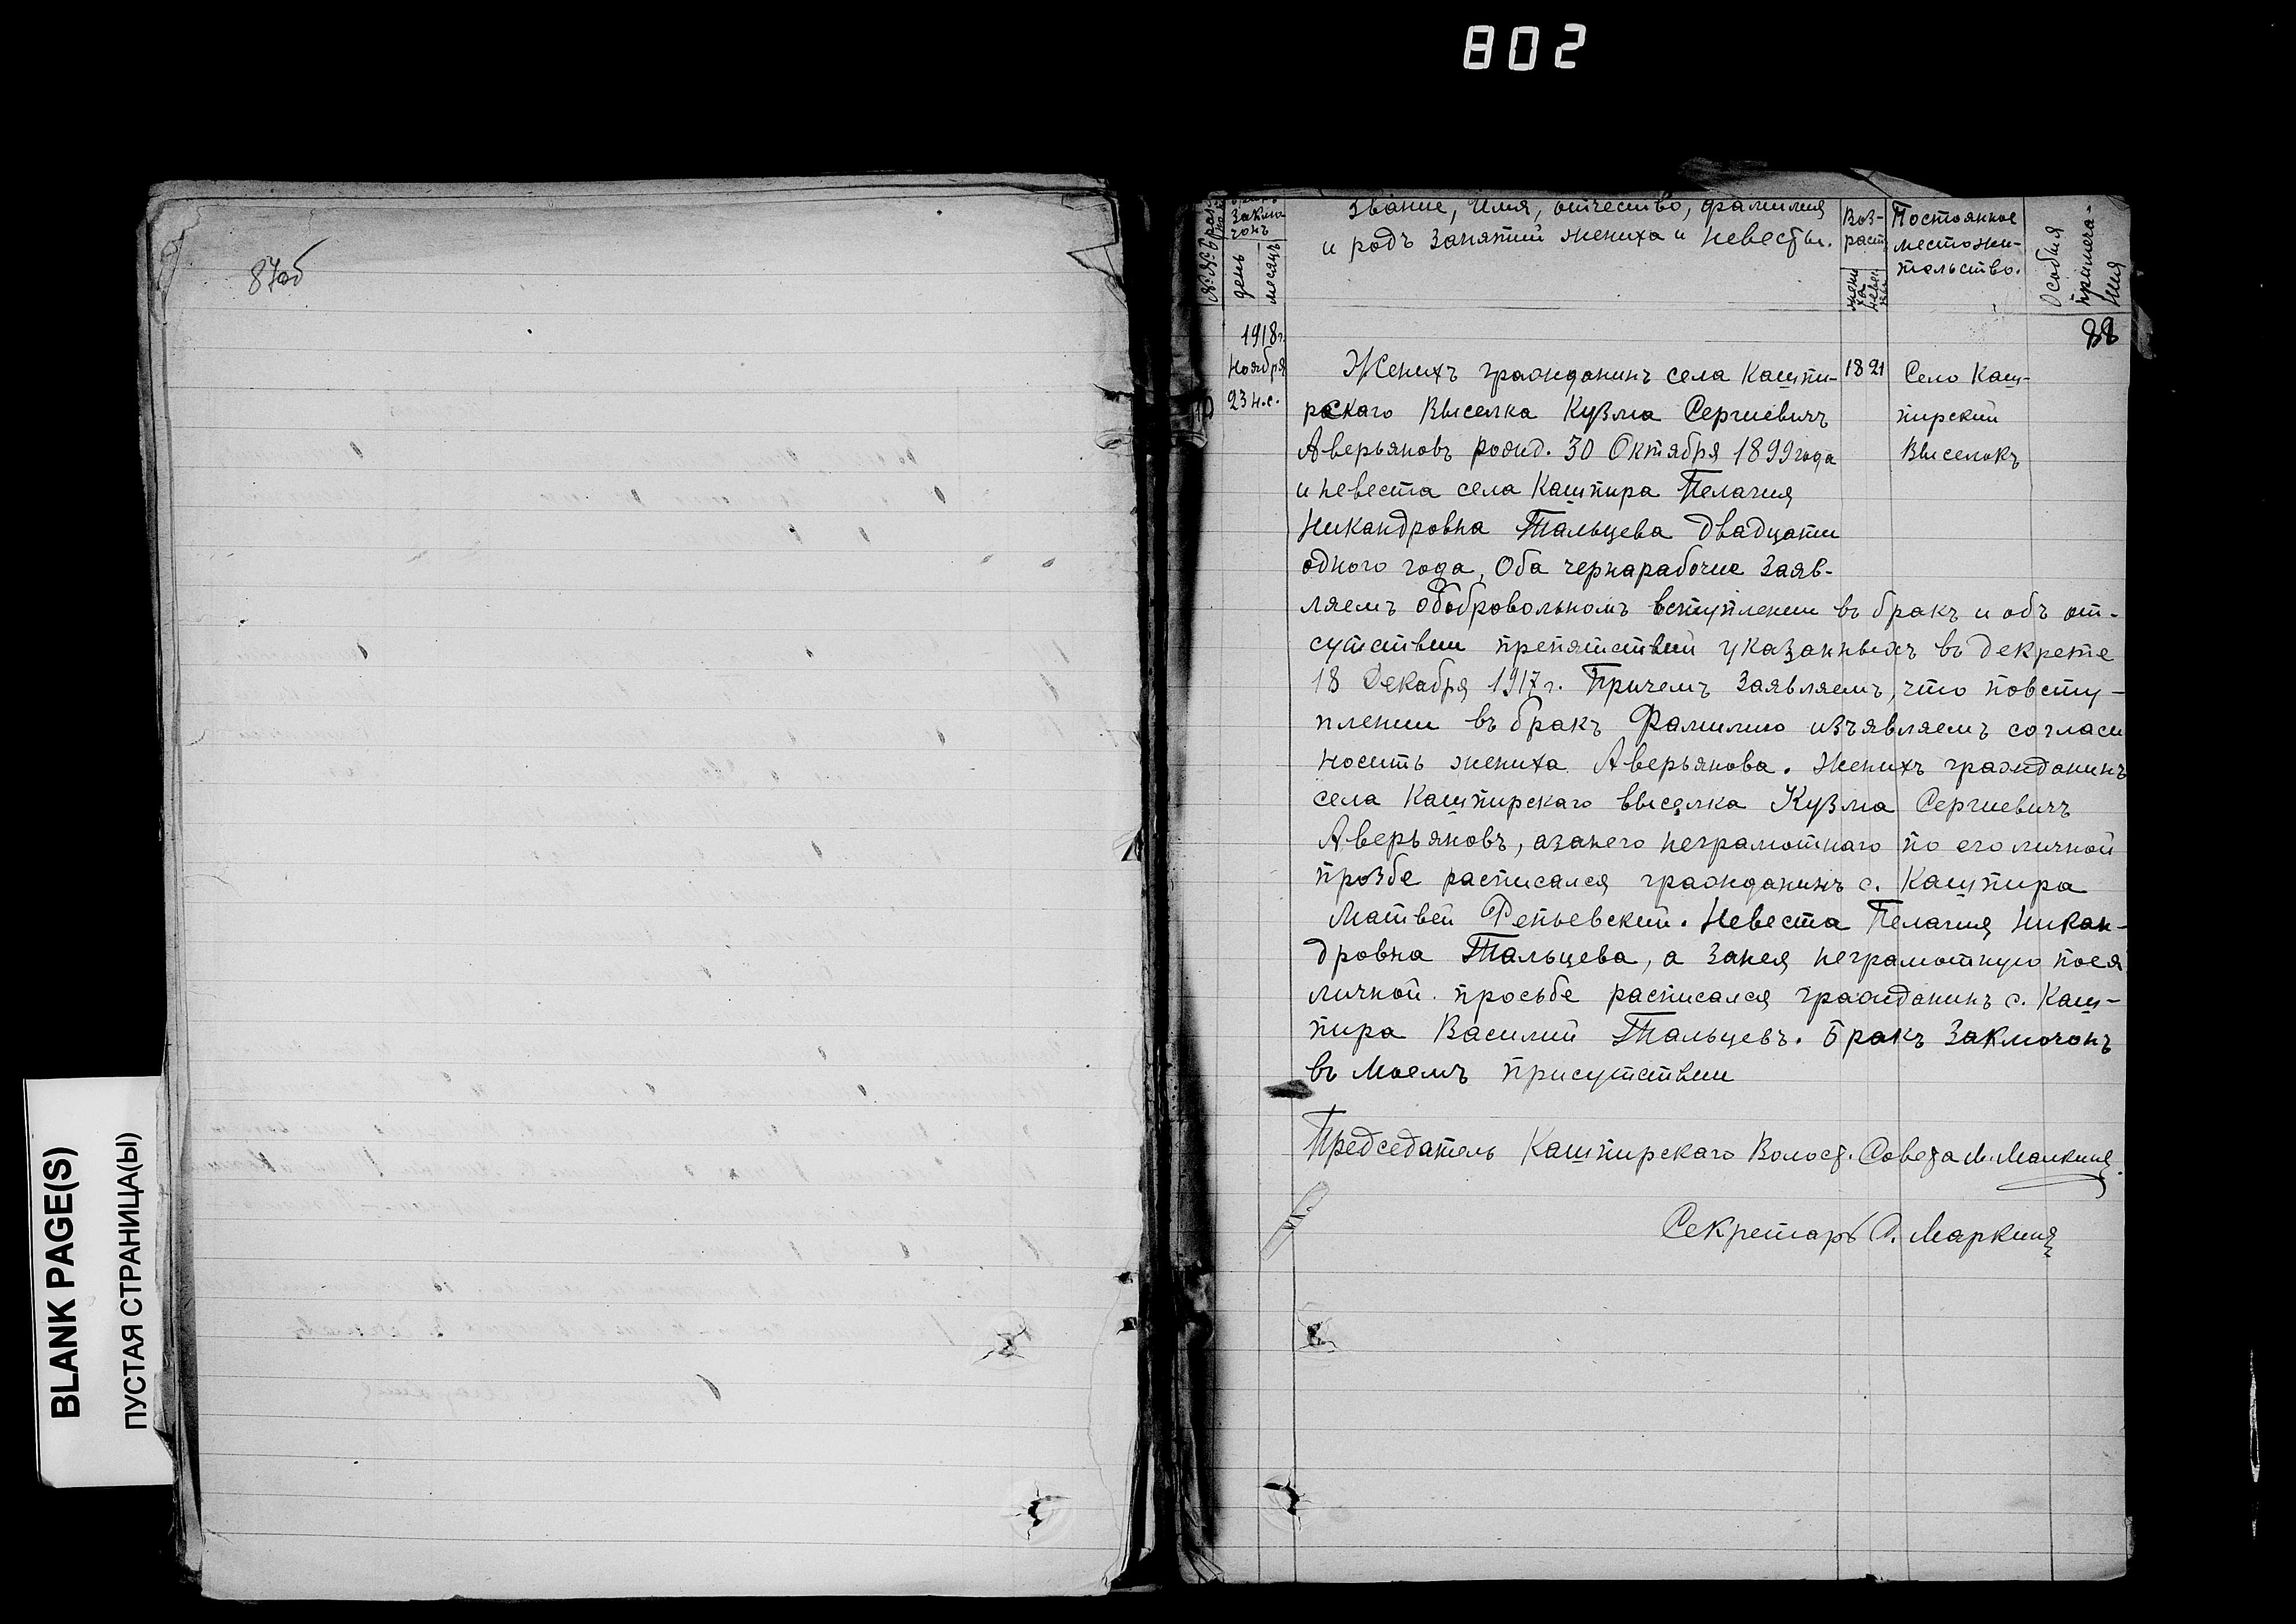 802
BLANK PAGE(S)
ПУСТАЯ СТРАНИЦА(Ы)
87об
Звание, Имя, отчество, фамилия
и родъ занятий жениха и невесты.
заклю
чонъ
день
месяцъ
Воз-
растъ
жени
ха
невес
ты
Постоянное
местожи-
тельство.
Особыя
примеча-
ния
88
1918г.
Ноября
23 н.с.
Женихъ гражданинъ села Кашпи- 18 21 Село Каш-
рскаго Выселка Кузма Сергиевичъ пирский
Аверьяновъ рожд. 30 Октября 1899 года Выселокъ
и невеста села Кашпира Пелагия
Никандровна Тальцева двадцати
одного года, Оба чернарабочие Заяв-
ляемъ одобровольномъ вступлении въ бракъ и объ от-
сутствии препятствий указанныхъ въ декрете
18 Декабря 1917 г. Причемъ Заявляемъ, что повсту-
плении въ бракъ Фамилию изъявляемъ согласи
носить жениха Аверьянова. Женихъ гражданинъ
села Кашпирскаго выселка Кузма Сергиевичъ
Аверьяновъ, азанего неграмотнаго по его личной
прозбе расписался гражданинъ с. Кашпира
Матвей Репьевский. Невеста Пелагия Никан-
дровна Тальцева, а занея неграмотную поея
личной просьбе расписался гражданинъ с. Каш-
пира Василий Тальцевъ. Бракъ Заключонъ
въ Моемъ присутствии
Председатель Кашпирскаго Волост. Совета М. Малкинъ
Секретарь С. Маркинъ